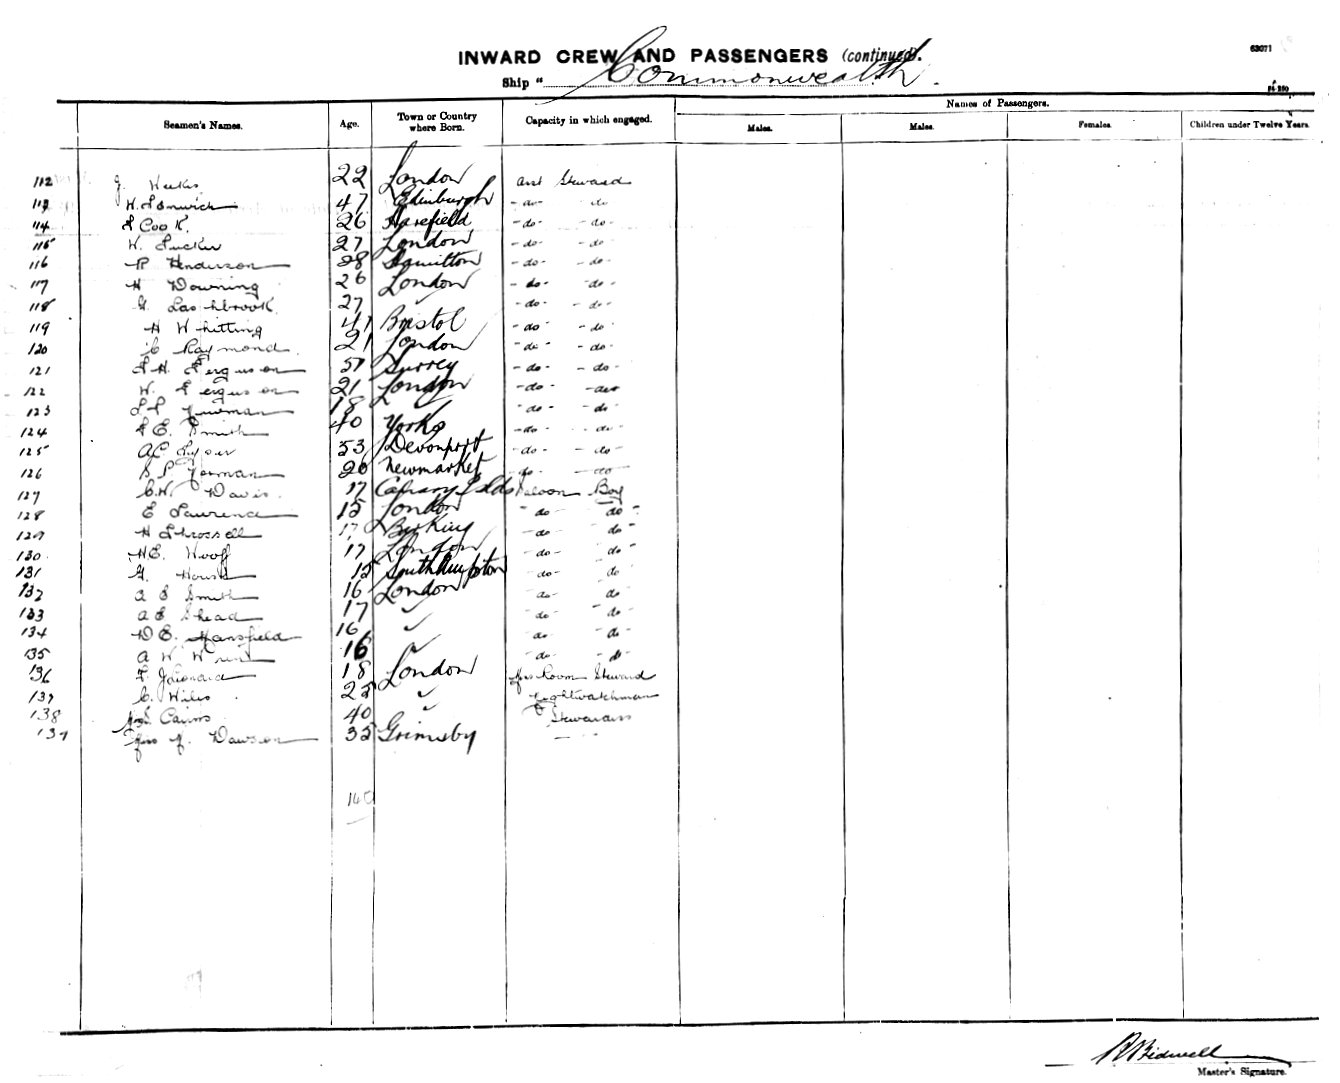 63071
INWARD CREW AND PASSENGERS (continued).
Ship " Commonwealth.
Names of Passengers.
Seamen's Names. Age. Town or Country where Born. Capacity in which engaged. Males. Males. Females. Children under Twelve Years.
112 J. Weekes 22 London Asst Steward
113 W. Fenwick 47 Edinburgh -do- do
114 F Cook 26 Harefield -do- -do-
115 W. Tucker 27 London -do- -do-
116 R Henderson 28 -do- -do-
117 H Downing 26 London -do- -do-
118 G. Lashbrook 27 ✓ -do- -do-
119 H Whitting 41 Bristol -do- -do-
120 C Raymond 21 London -do- -do-
121 F. H. Ferguson 51 Surrey -do- -do-
122 W. Ferguson 21 London -do- -do-
123 Newman 18 ✓ -do- -do-
124 F E. Smith 40 Yorks -do- -do-
125 53 Devonport -do- -do-
126 S P Yewman 20 Newmarket do -do-
127 C. W. Davis 17 Saloon Boy
128 E Lawrence 15 London do do
129 H Throssell 17 Barking do do
130 H E. Woolf 17 London do do
131 G. House 15 Southampton do do
132 A E Smith 16 London do do
133 A E Shead 17 ✓ do do
134 D E. Mansfield 16 ✓ do do
135 A W 16 ✓ do do
136 F. Leonard 18 London Mess Room Steward
137 C. Wiles 25 ✓ Nightwatchman
138 Mrs S. Cairns 40 ✓ Stewardess
139 Miss M. Dawson 35 Grimsby
140
B Bidwell
Master's Signature.